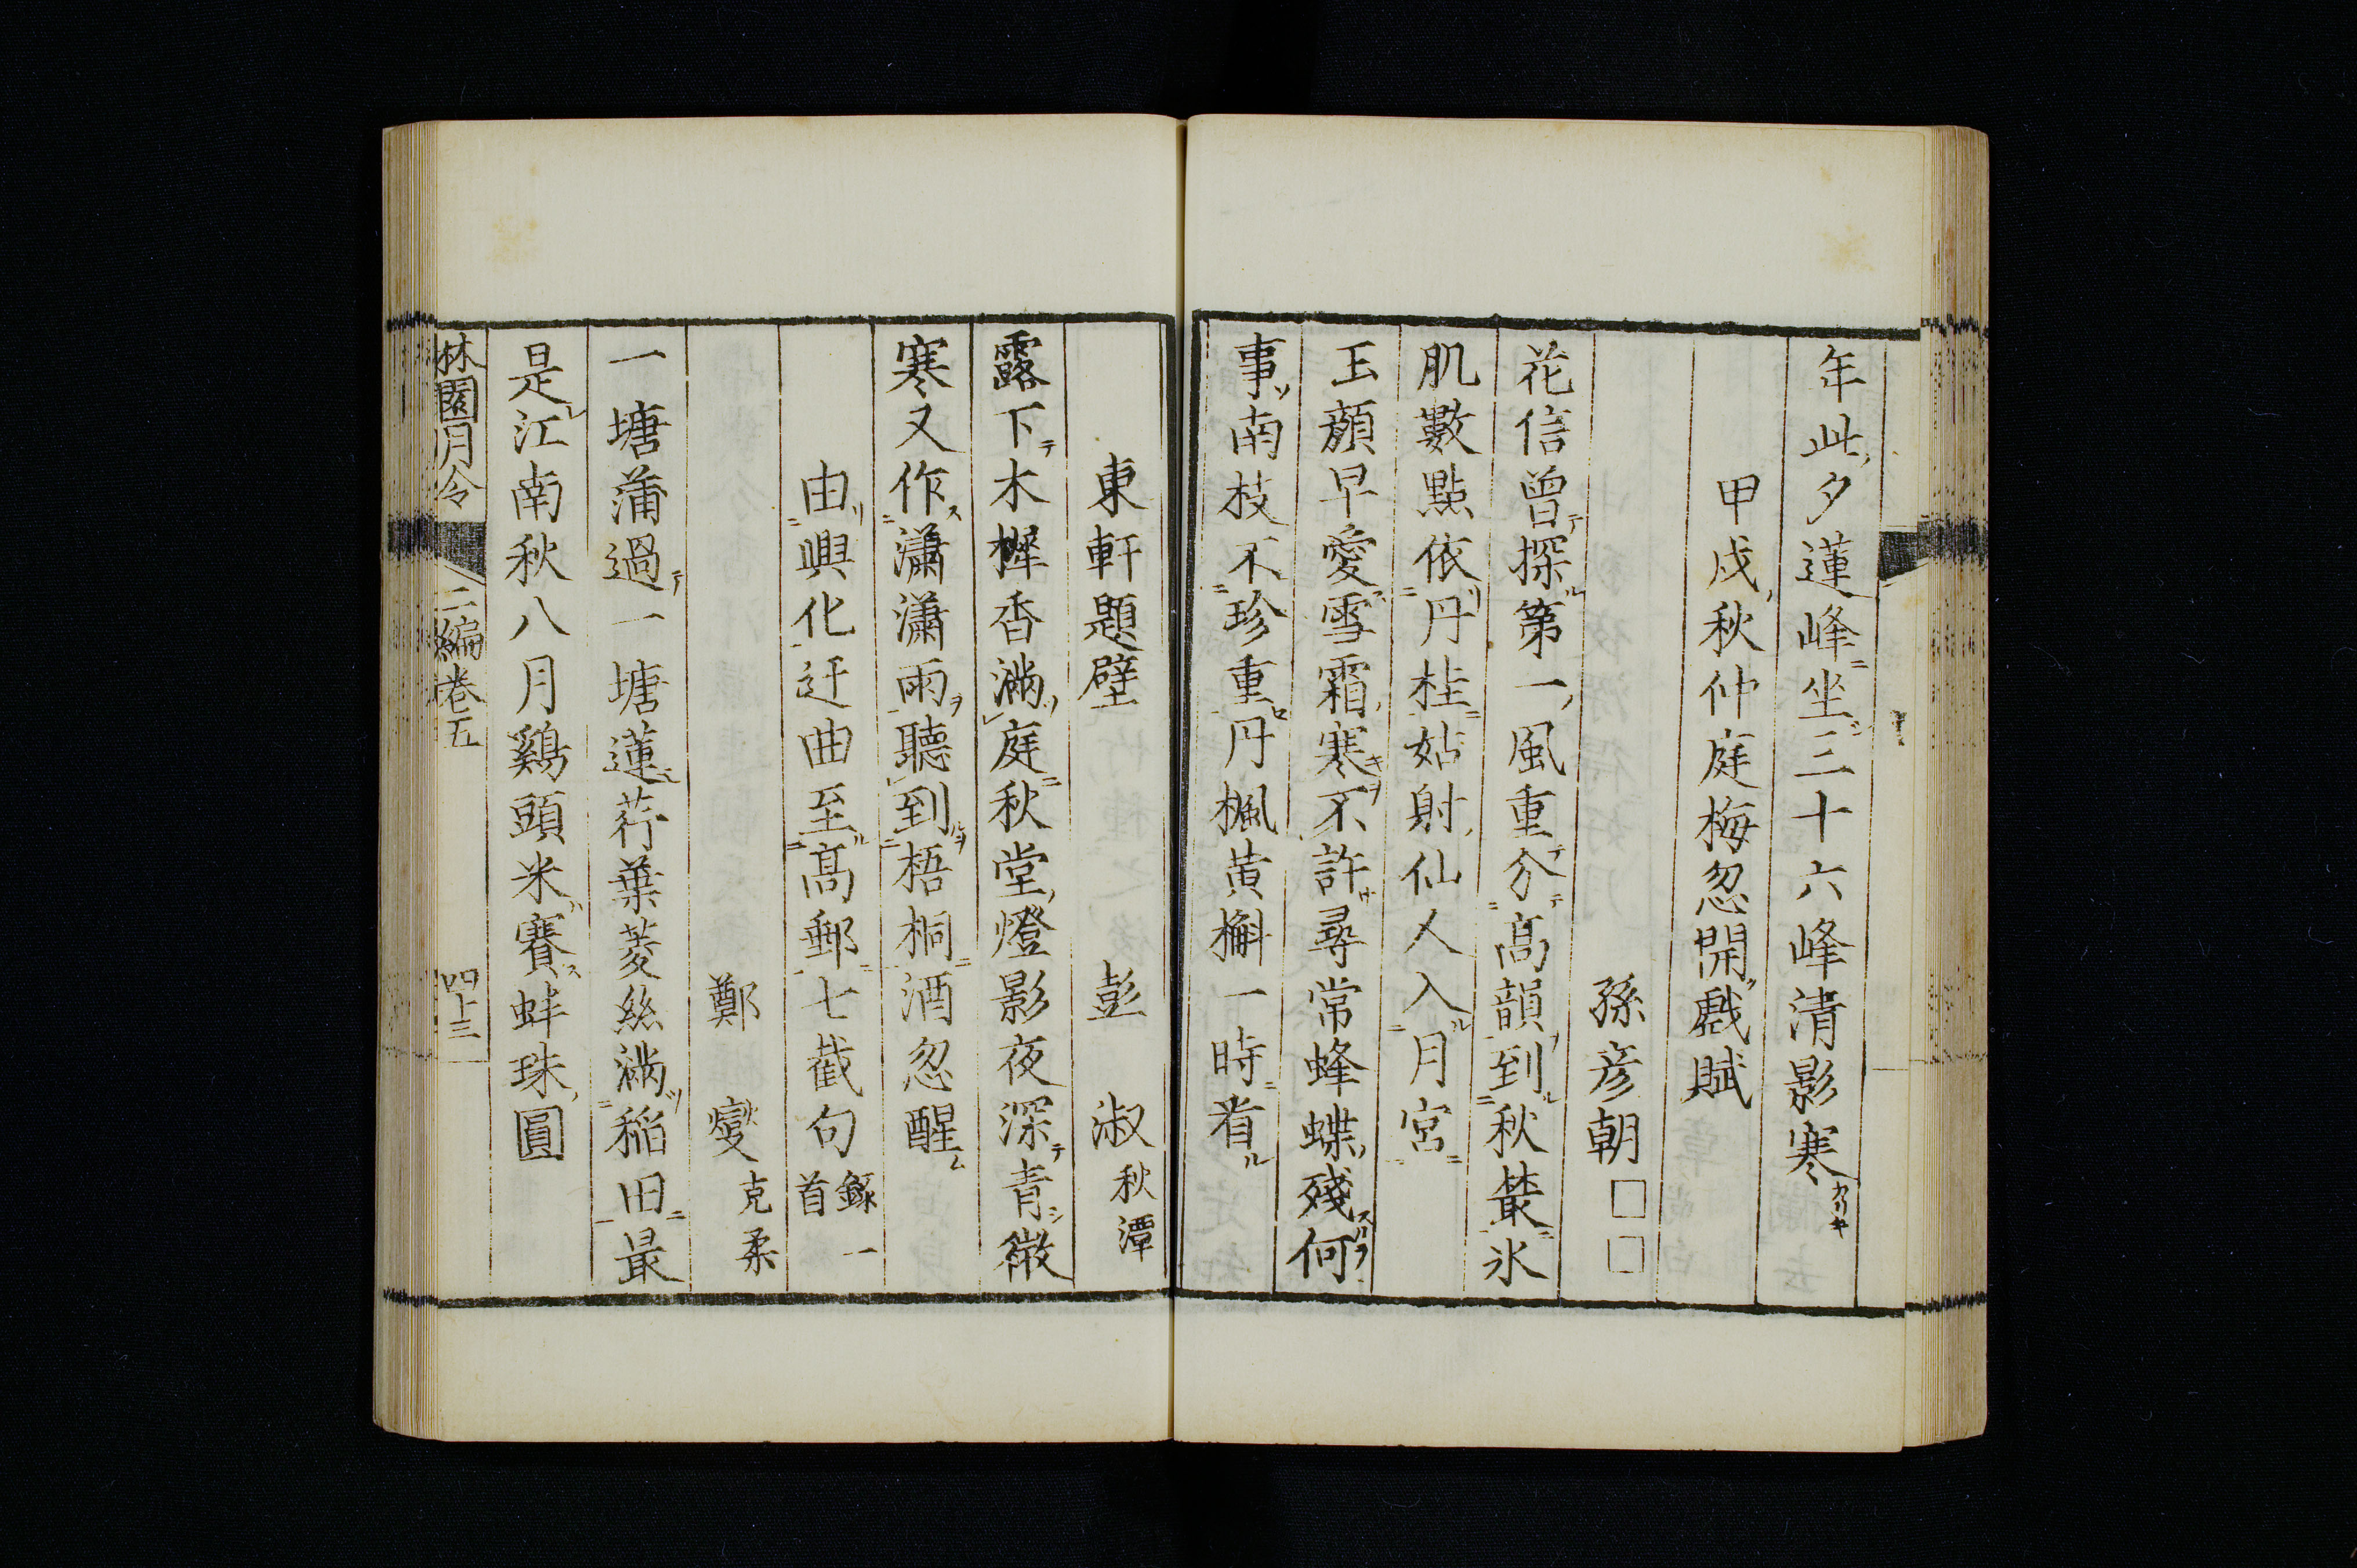 年此夕蓮峰坐三十六峰清影寒
甲戌秋仲庭梅忽開戲賦
孫彦朝□□
花信曾探第一風重分高韻到秋叢氷
肌數點依丹桂姑射仙人入月宮
玉顏早愛雪霜寒不許尋常蜂蝶殘何
事南枝不珍重丹楓黄槲一時看
東軒題壁　彭淑秋潭
露下木樨香滿庭秋堂燈影夜深青微
寒又作瀟瀟雨聽到梧桐酒忽醒
由興化迂曲至高郵七截句錄一首
鄭燮克柔
一塘蒲過一塘蓮荇葉菱絲滿稲田最
是江南秋八月鷄頭米賽蚌珠圓
林園月令　二編卷五　四十三